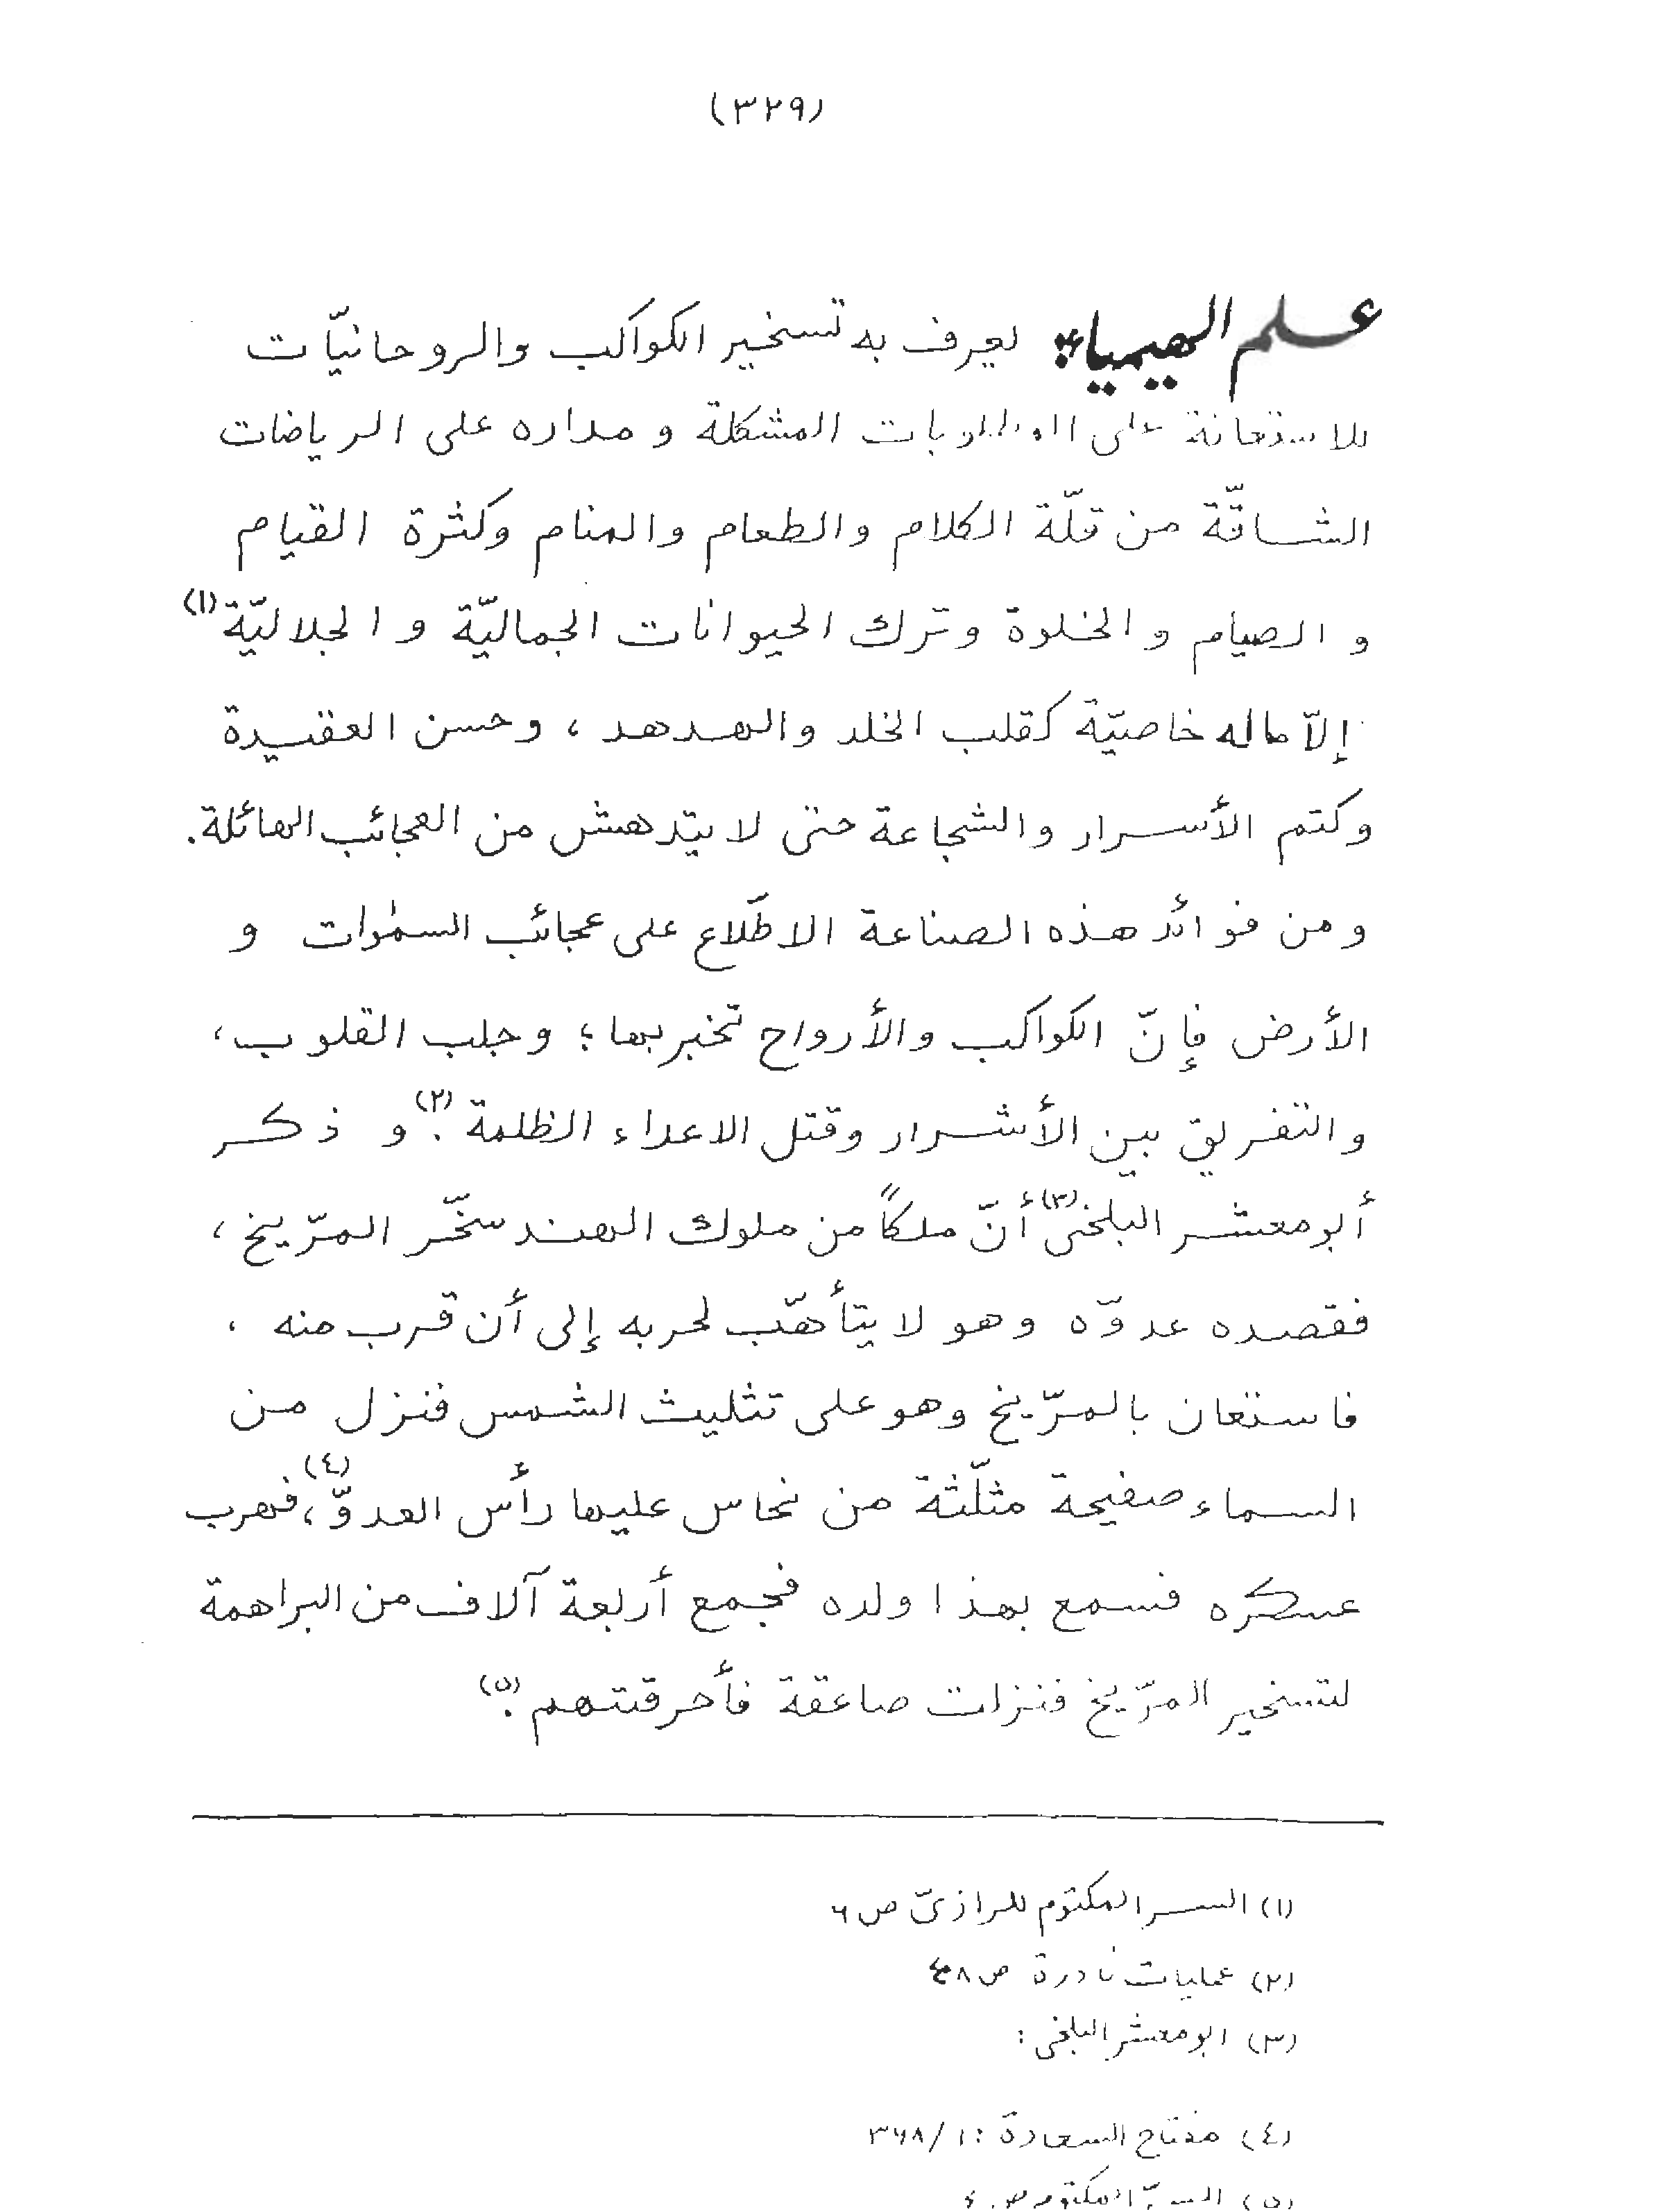 (٣٢٩)
علم الهيمياء* يعرف به تسخير الكواكب والروحانيّات
للاستعانة على المطلوبات المشكلة و مداره على الرياضات
الشاقّة من قلّة الكلام والطعام والمنام وكثرة القيام
و الصيام و الخلوة و ترك الحيوانات الجماليّة و الجلاليّة (١)
إلاّ ماله خاصيّة كقلب الخلد والهدهد ، وحسن العقيدة
وكتم الأسرار والشجاعة حتى لا يتدهش من العجائب الهائلة.
ومن فوائد هذه الصناعة الاطّلاع على عجائب السمٰوات و
الأرض فإنّ الكواكب والأرواح تخبر بها ؛ وجلب القلوب ،
والتفريق بين الأشرار وقتل الاعداء الظلمة (٢). و ذكر
أبومعشر البلخى (٣) أنّ ملكاً من ملوك الهند سخّر المرّيخ ،
فقصده عدوّه وهو لا يتأهّب لحربه إلى أن قرب منه ،
فاستعان بالمرّيخ وهو على تثليث الشمس فنزل من
السماء صفيحة مثلّثة من نحاس عليها رأس العدوّ (٤)، فهرب
عسكره فسمع بهذا ولده فجمع أربعة آلاف من البراهمة
لتسخير المرّيخ فنزلت صاعقة فأحرقتهم (٥).
(١) السر المكتوم للرازىّ ص ٦
(٢) عمليات نادرة ص
(٣) ابومعشر البلخى :
(٤) مفتاح السعادة : ١/٣٦٨
(٥) السرّ المكتوم ص